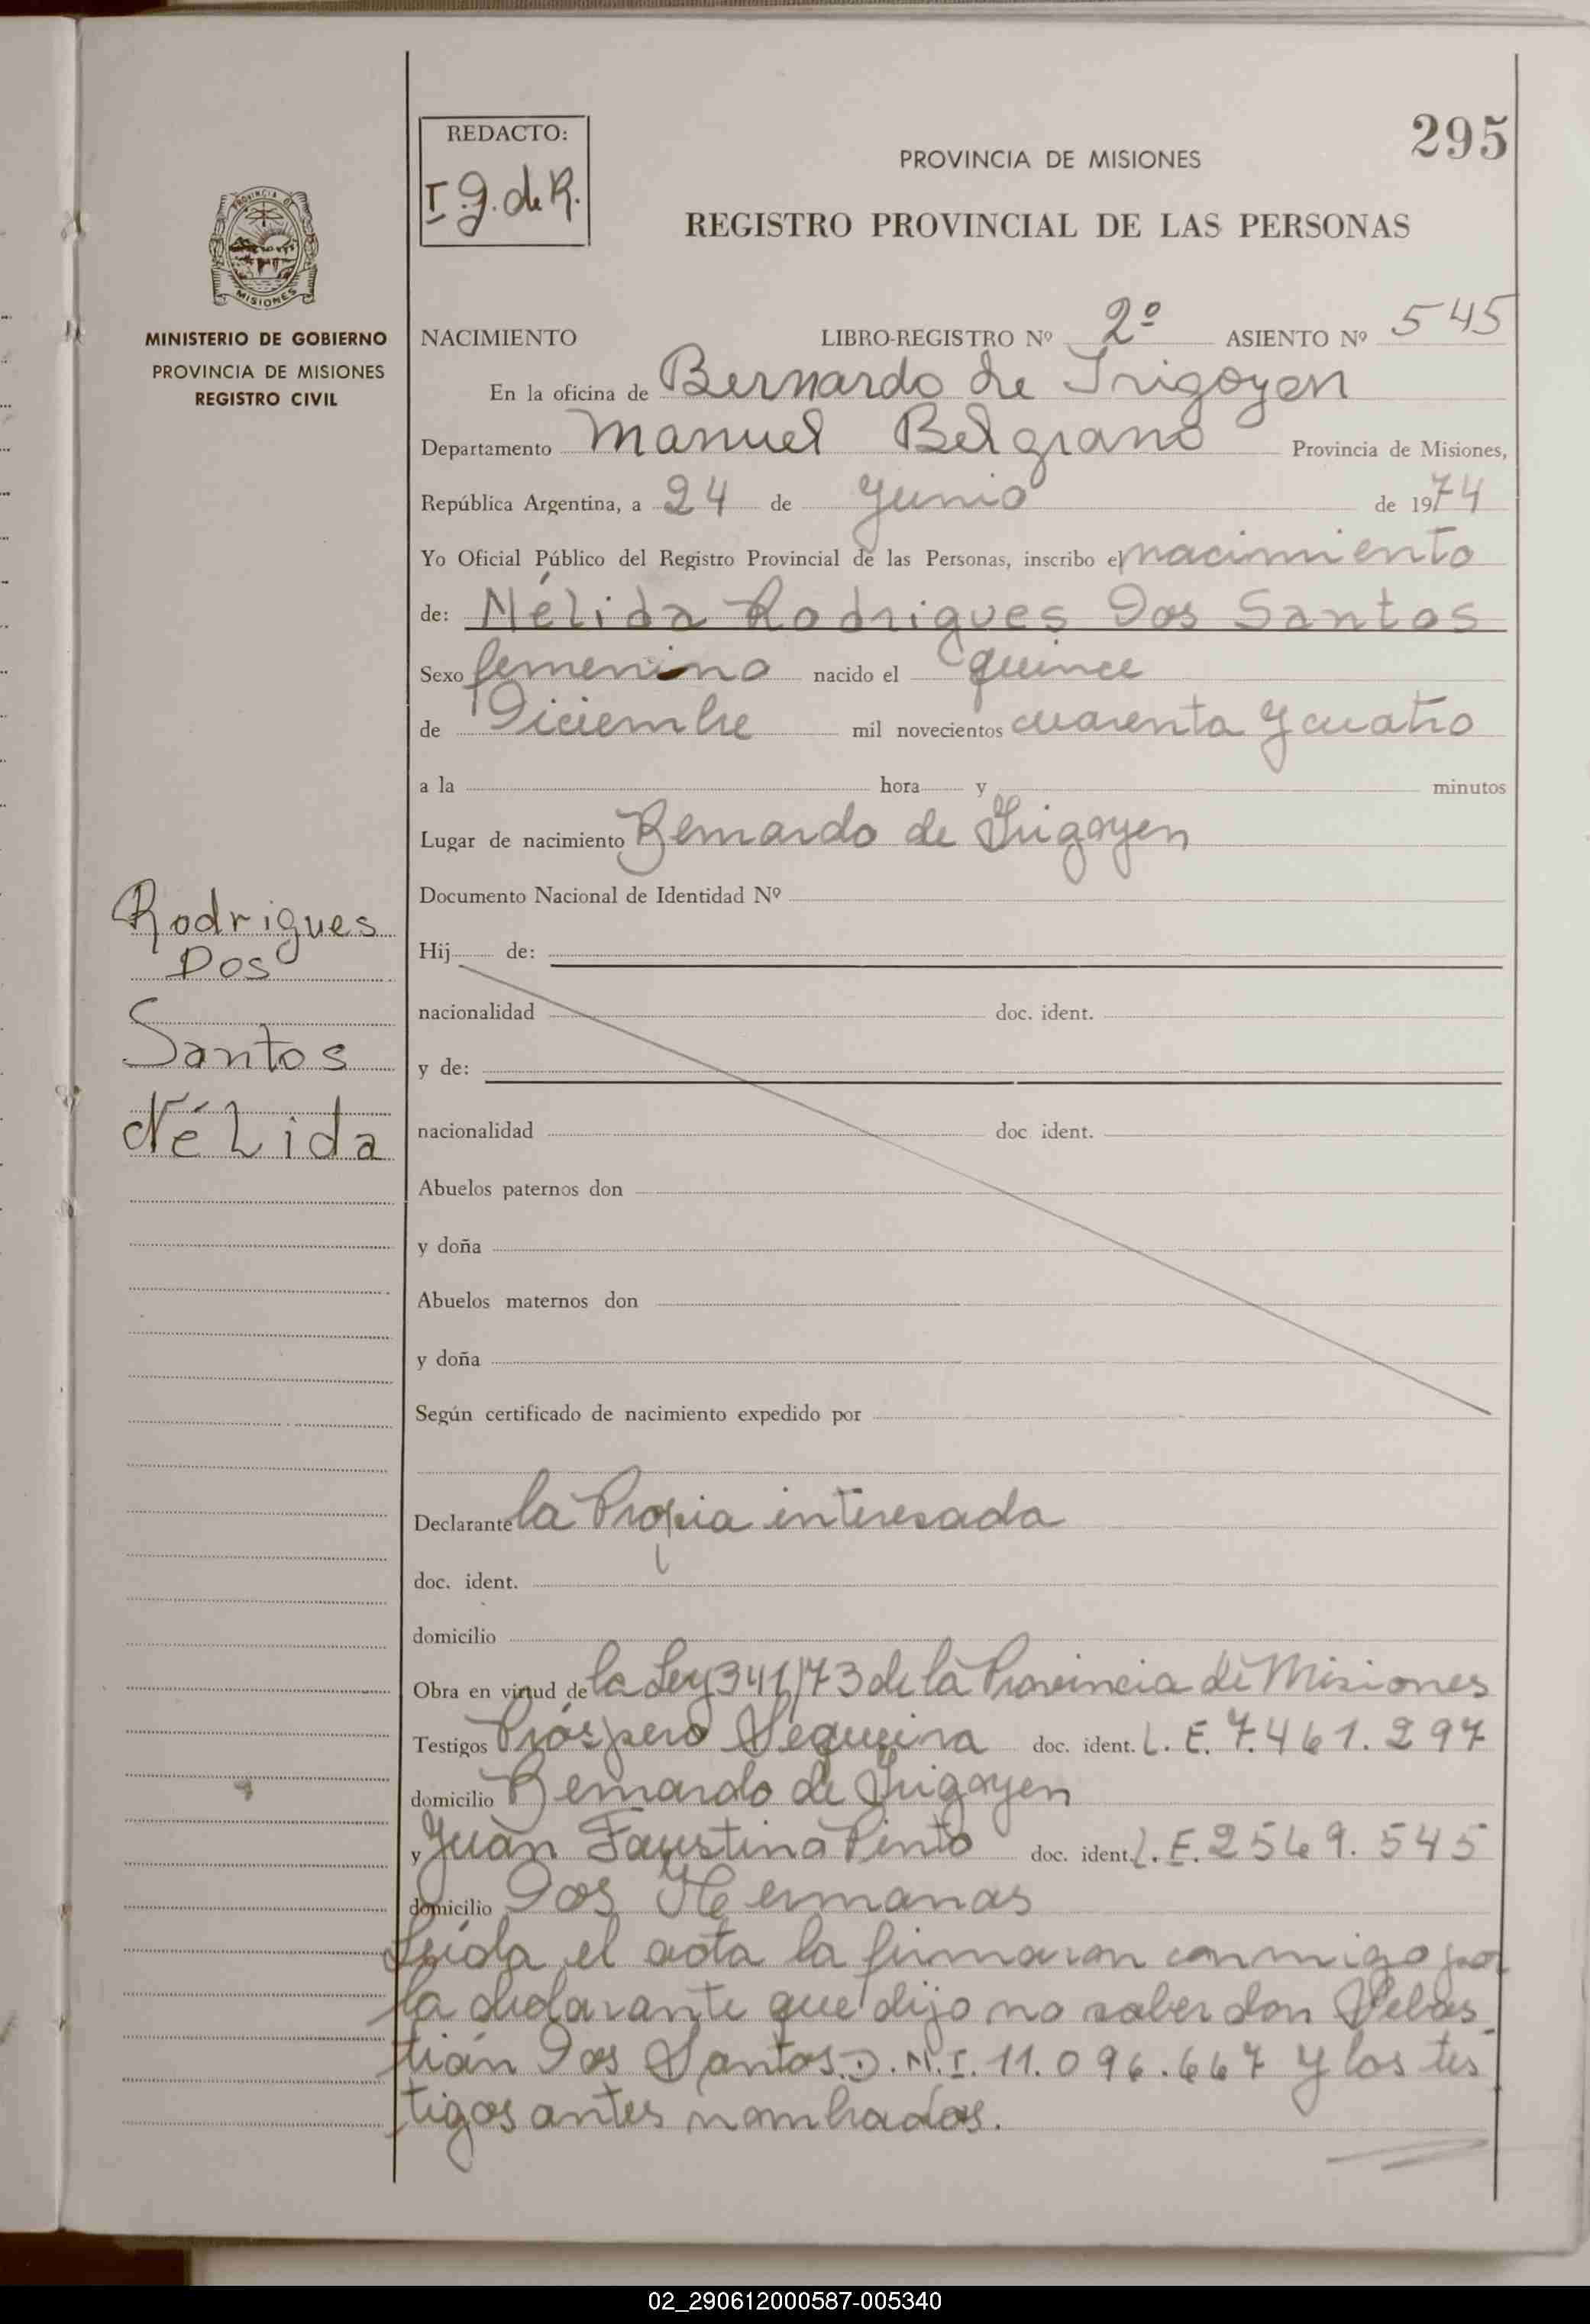 295
REDACTO:
I. g. de R.
PROVINCIA DE MISIONES
REGISTRO PROVINCIAL DE LAS PERSONAS
PROVINCIA DE
MISIONES
MINISTERIO DE GOBIERNO
PROVINCIA DE MISIONES
REGISTRO CIVIL
NACIMIENTO LIBRO-REGISTRO Nº 2º ASIENTO Nº 545
En la oficina de Bernardo de Irigoyen
Departamento Manuel Belgrano Provincia de Misiones,
República Argentina, a 24 de Junio de 1974
Yo Oficial Público del Registro Provincial de las Personas, inscribo el nacimiento
de: Nélida Rodrigues Dos Santos
Sexo femenino nacido el quince
de Diciembre mil novecientos cuarenta y cuatro
a la hora y minutos
Lugar de nacimiento Bernardo de Irigoyen
Documento Nacional de Identidad Nº
Rodrigues
Dos
Santos
Nélida
Hij de:
nacionalidad doc. ident.
y de:
nacionalidad doc ident.
Abuelos paternos don
y doña
Abuelos maternos don
y doña
Según certificado de nacimiento expedido por
Declarante la Propia interesada
doc. ident.
domicilio
Obra en virtud de la Ley 341/73 de la Provincia de Misiones
Testigos Próspero Sequeira doc. ident. L. E. 7.461.297
domicilio Bernardo de Irigoyen
y Juan Faustino Pinto doc. ident. L. E. 2569.545
domicilio Dos Hermanas
Leída el acta la firmaron conmigo por
la declarante que dijo no saber don Sebas
tián Dos Santos D.N.I. 11.096.667 y los tes
tigos antes nombrados.
02_290612000587-005340